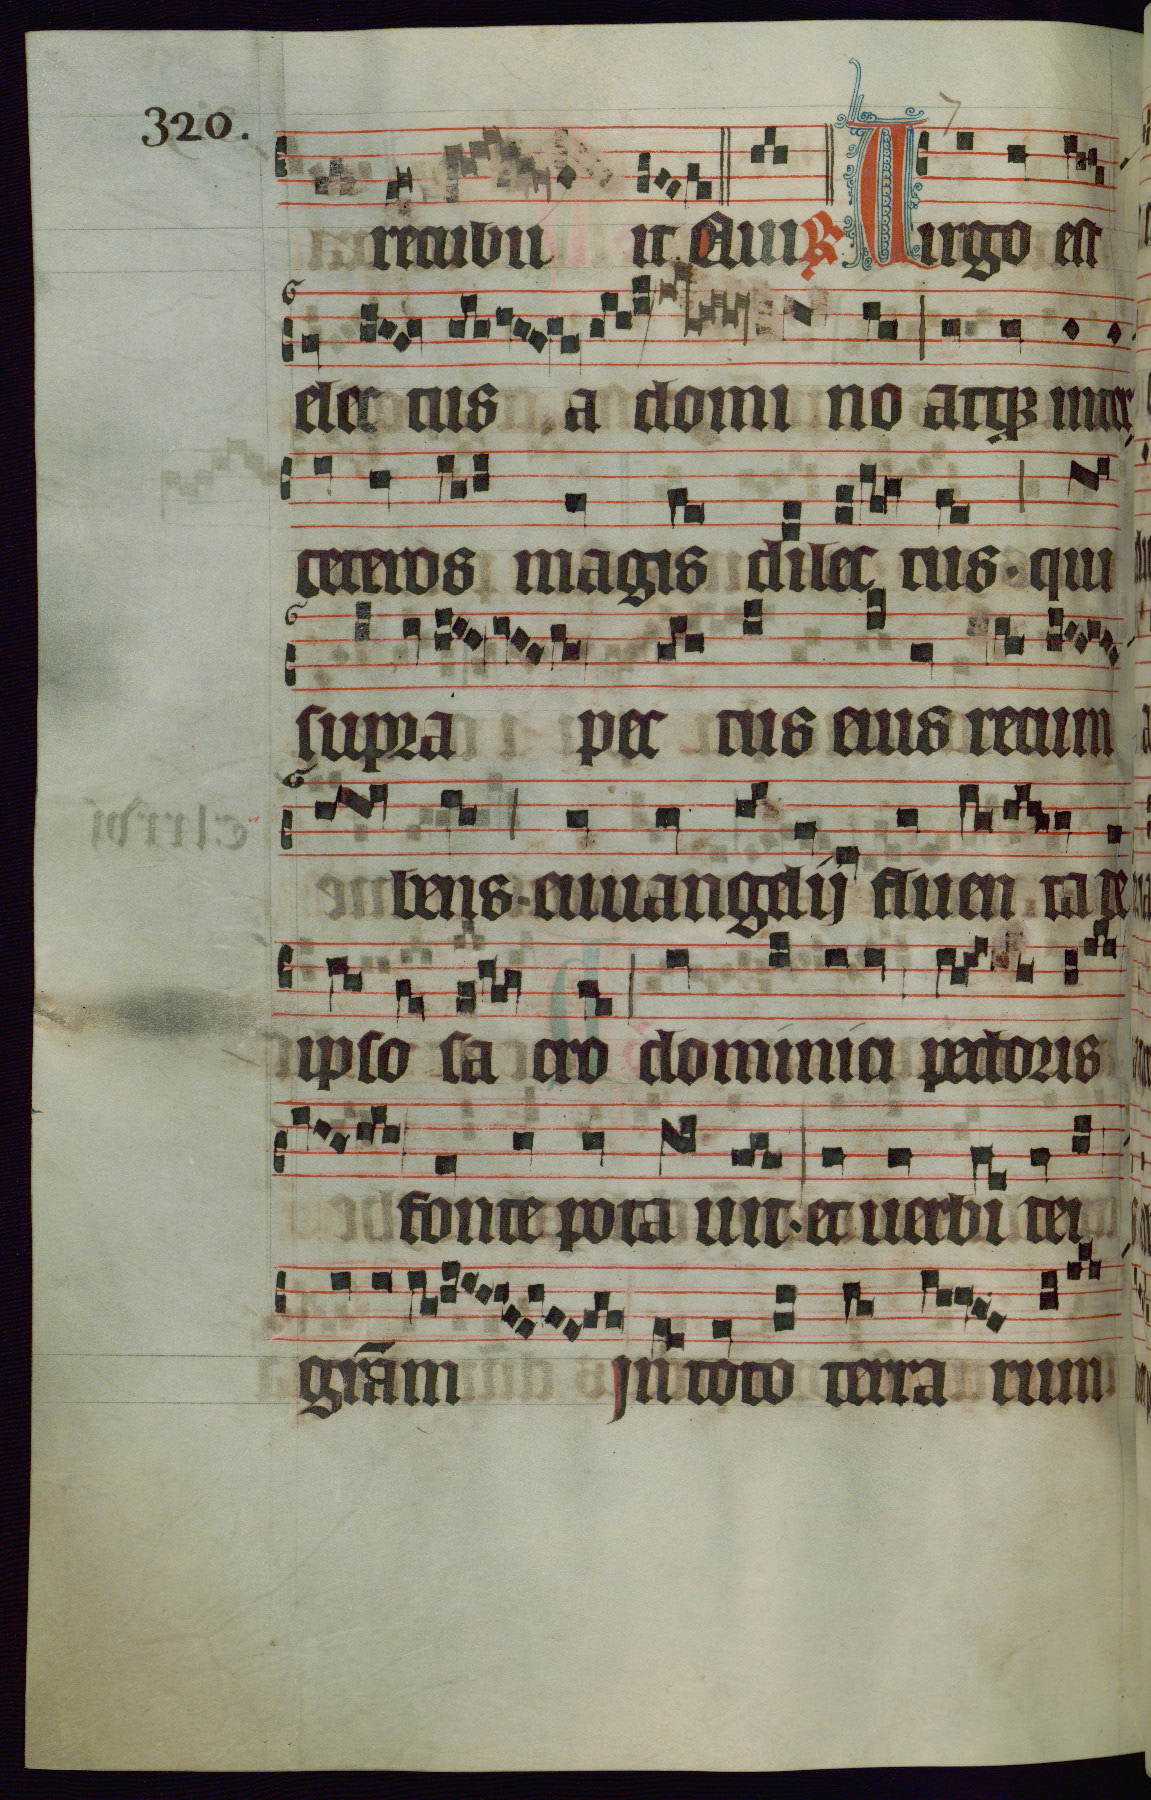 320.
recubu it Euu ℟ Uirgo est
elec tus a domi no atqꝫ inter
ceteros magis dilec tus · qui
supra pec tus eius recum
bens · euuangelij fluen ta de
ipso sa cro dominici pectoris
fonte pota uit · et uerbi dei
gr̄am In toto terra rum